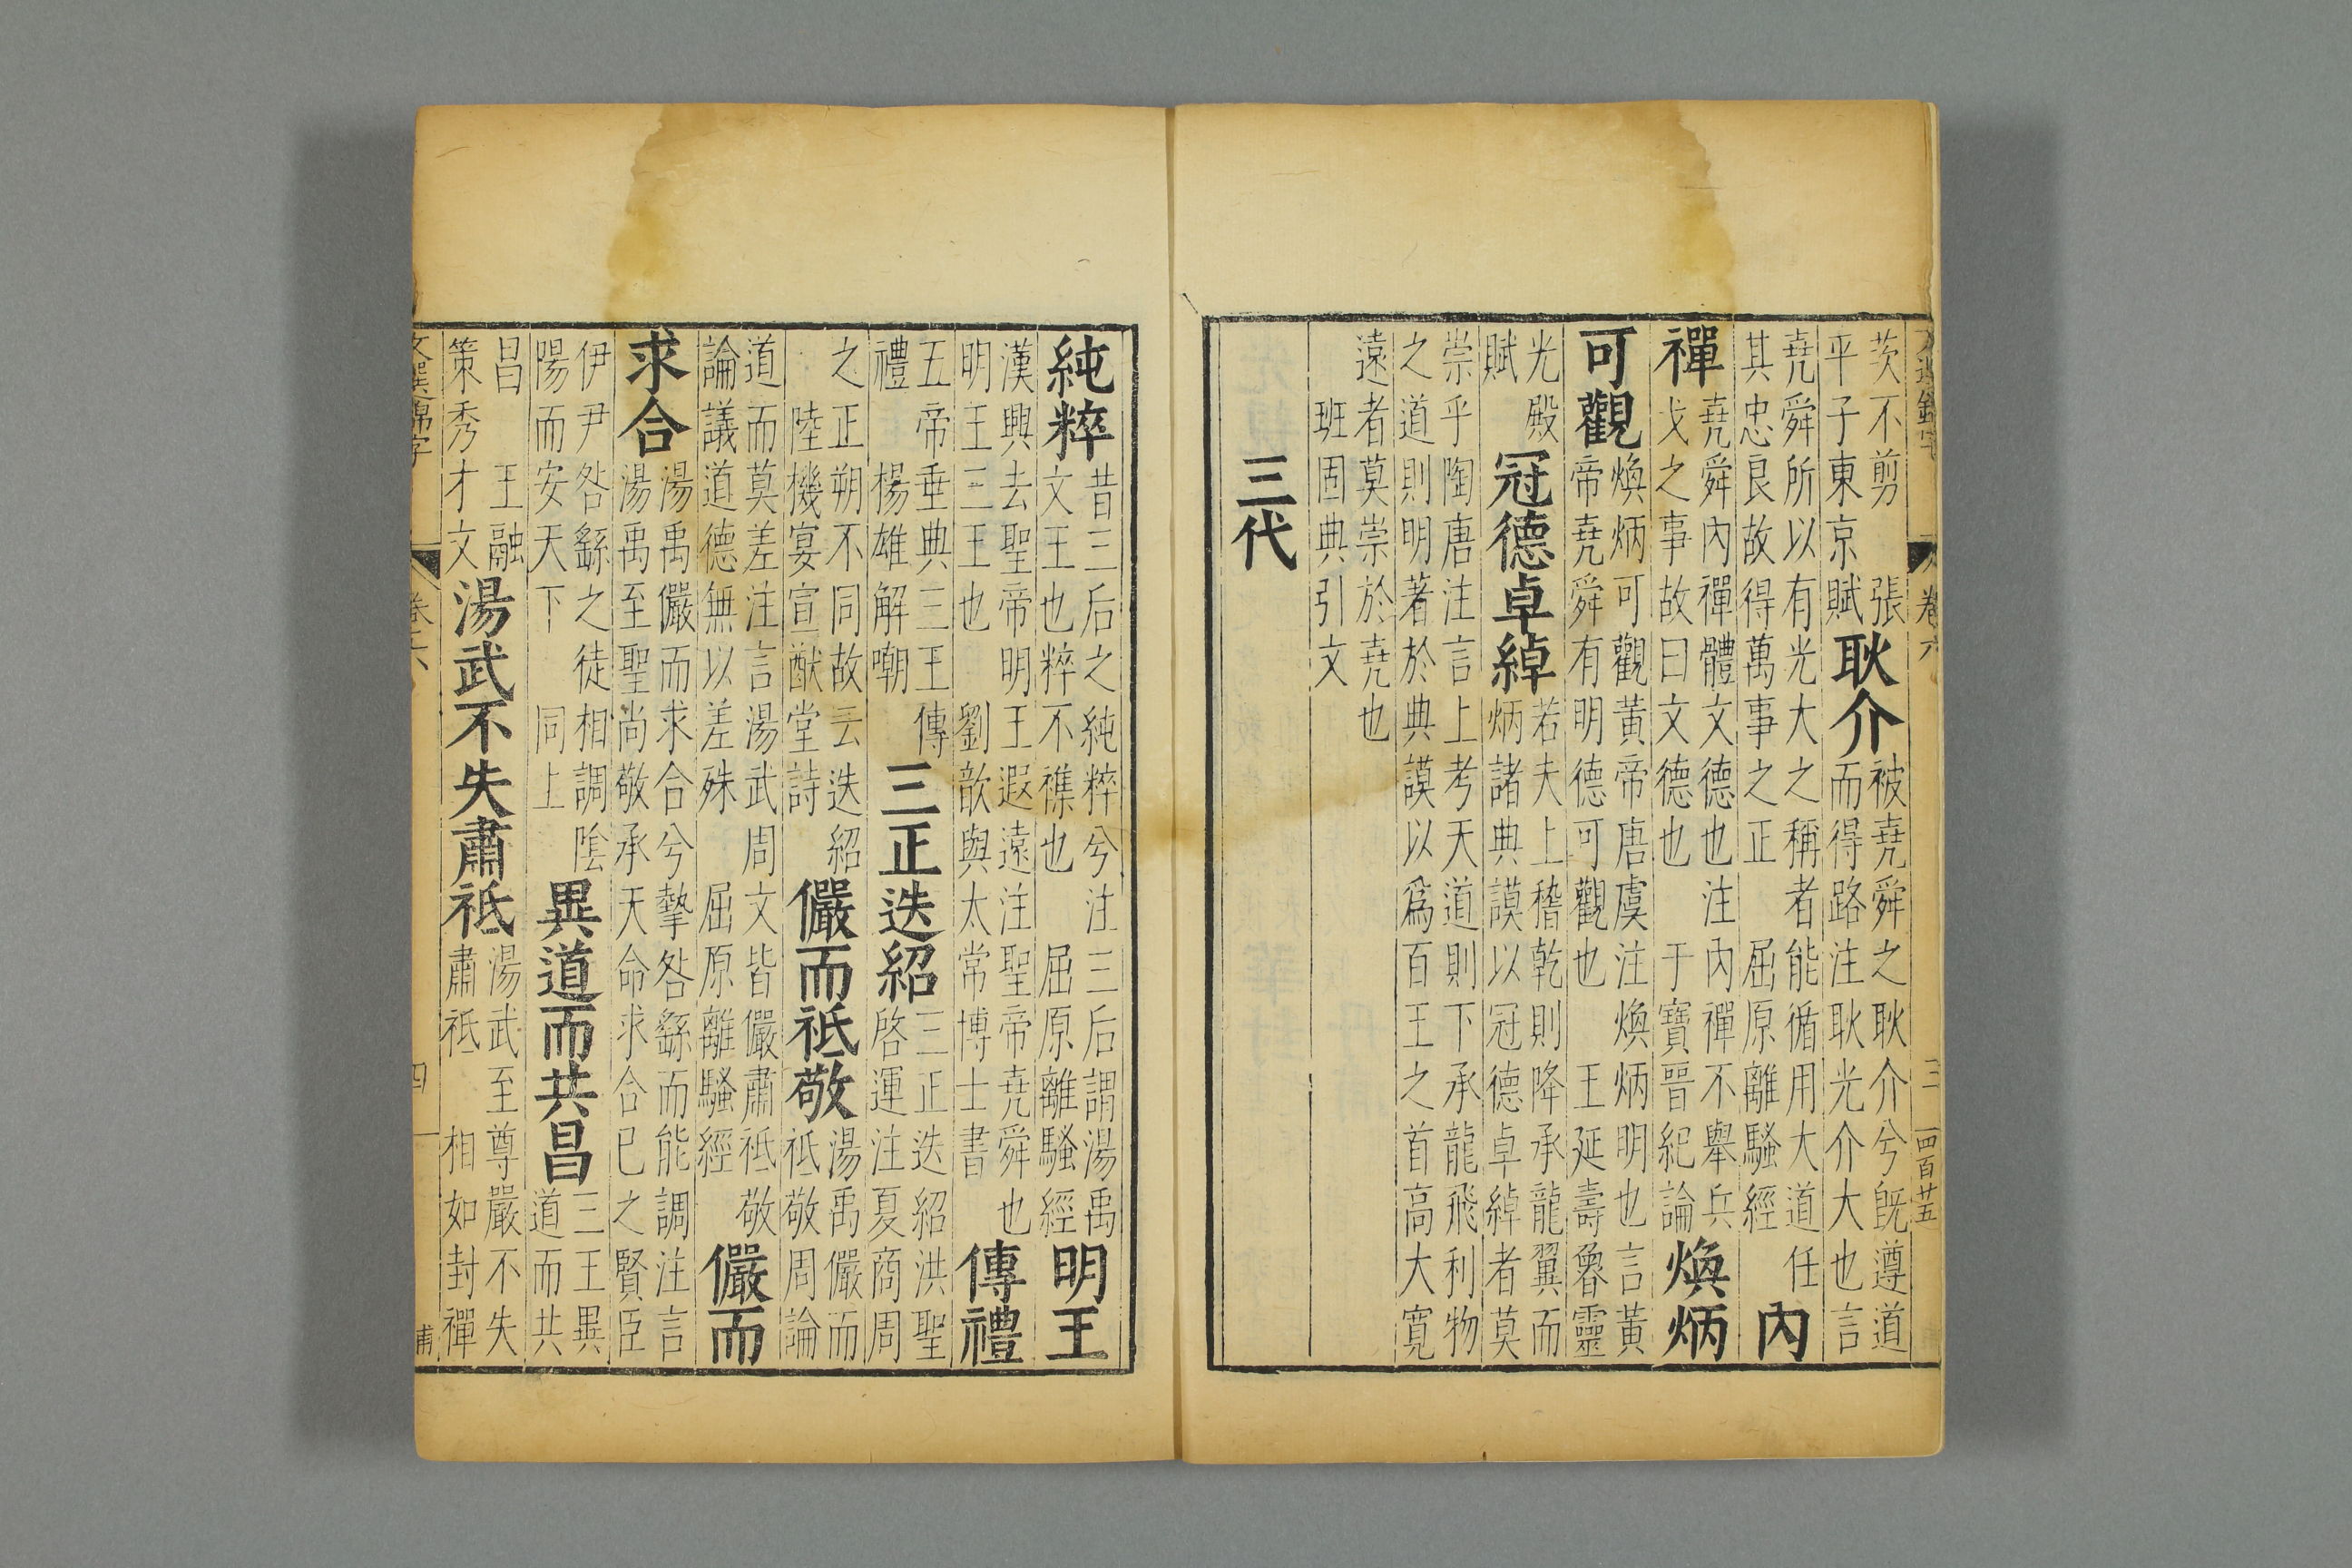 文選錦字 卷六 三 四百廿五
茨不剪 張
平子東京賦
耿介
被堯舜之耿介兮旣遵道
而得路注耿光介大也言
堯舜所以有光大之稱者能循用大道任
其忠良故得萬事之正 屈原離騷經
內
禪
堯舜內禪體文德也注內禪不舉兵
戈之事故曰文德也 于寶晉紀論
煥炳
可觀
煥炳可觀黃帝唐虞注煥炳明也言黃
帝堯舜有明德可觀也 王延壽魯靈
光殿
賦
冠德卓綽
若夫上稽乾則降承龍翼而
炳諸典謨以冠德卓綽者莫
崇乎陶唐注言上考天道則下承龍飛利物
之道則明著於典謨以爲百王之首高大寬
遠者莫崇於堯也
班固典引文
三代
純粹
昔三后之純粹兮注三后謂湯禹
文王也粹不襍也 屈原離騷經
明王
漢興去聖帝明王遐遠注聖帝堯舜也
明王三王也 劉歆與太常博士書
傳禮
五帝垂典三王傳
禮 楊雄解嘲
三正迭紹
三正迭紹洪聖
啓運注夏商周
之正朔不同故云迭紹
陸機宴宣猷堂詩
儼而祗敬
湯禹儼而
祗敬周論
道而莫差注言湯武周文皆儼肅祗敬
論議道德無以差殊 屈原離騷經
儼而
求合
湯禹儼而求合兮摯咎繇而能調注言
湯禹至聖尚敬承天命求合已之賢臣
伊尹咎繇之徒相調陰
陽而安天下 同上
異道而共昌
三王異
道而共
昌 王融
策秀才文
湯武不失肅祗
湯武至尊嚴不失
肅祗 相如封禪
文選錦字 卷六 四 甫